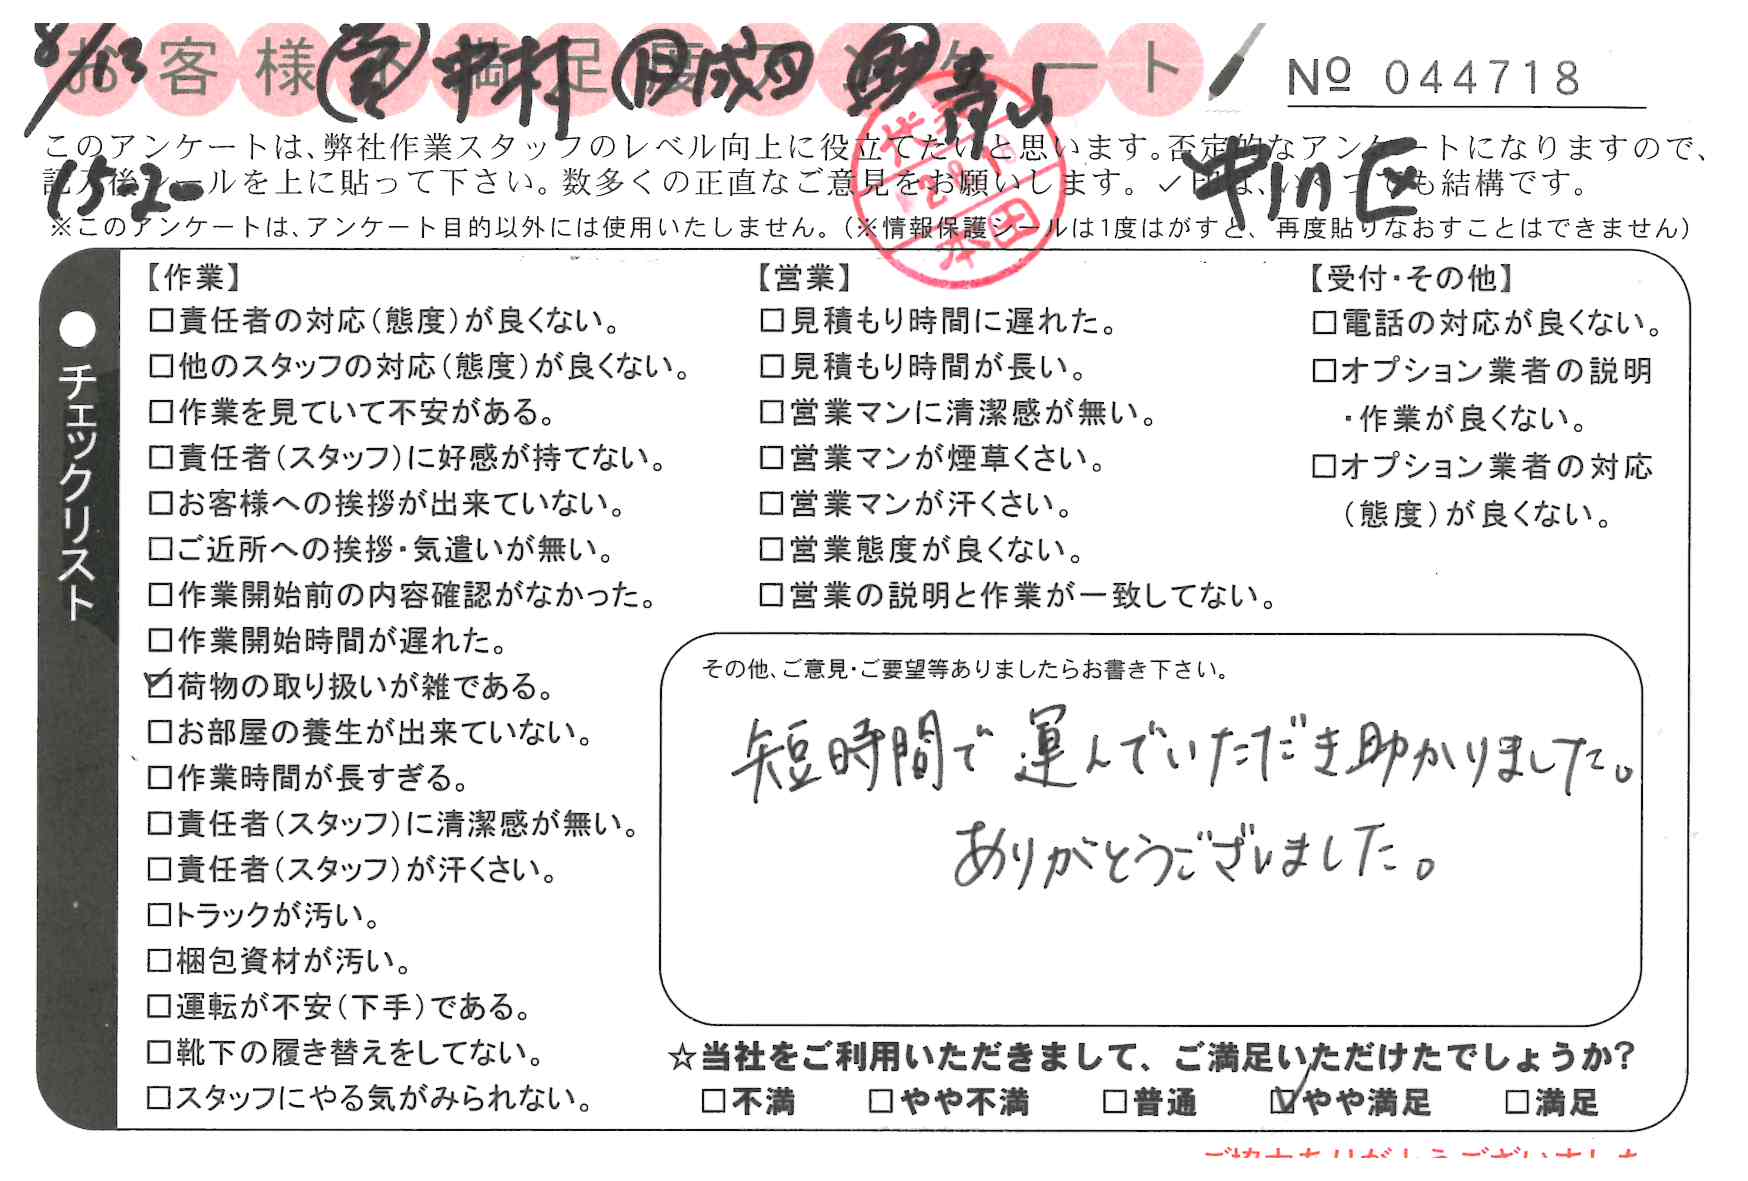 8/13 お客様不満足度アンケート
㊂中村 ㊊成田 ㊐青山
№ 044718
このアンケートは、弊社作業スタッフのレベル向上に役立てたいと思います。否定的なアンケートになりますので、
記入後シールを上に貼って下さい。数多くの正直なご意見をお願いします。✓印は、いくつでも結構です。
1520
中川区
※このアンケートは、アンケート目的以外には使用いたしません。(※情報保護シールは1度はがすと、再度貼りなおすことはできません)
本田
●チェックリスト
【作業】
□責任者の対応(態度)が良くない。
□他のスタッフの対応(態度)が良くない。
□作業を見ていて不安がある。
□責任者(スタッフ)に好感が持てない。
□お客様への挨拶が出来ていない。
□ご近所への挨拶・気遣いが無い。
□作業開始前の内容確認がなかった。
□作業開始時間が遅れた。
☑荷物の取り扱いが雑である。
□お部屋の養生が出来ていない。
□作業時間が長すぎる。
□責任者(スタッフ)に清潔感が無い。
□責任者(スタッフ)が汗くさい。
□トラックが汚い。
□梱包資材が汚い。
□運転が不安(下手)である。
□靴下の履き替えをしてない。
□スタッフにやる気がみられない。
【営業】
□見積もり時間に遅れた。
□見積もり時間が長い。
□営業マンに清潔感が無い。
□営業マンが煙草くさい。
□営業マンが汗くさい。
□営業態度が良くない。
□営業の説明と作業が一致してない。
【受付・その他】
□電話の対応が良くない。
□オプション業者の説明
・作業が良くない。
□オプション業者の対応
(態度)が良くない。
その他、ご意見・ご要望等ありましたらお書き下さい。
短時間で運んでいただき助かりました。
ありがとうございました。
☆当社をご利用いただきまして、ご満足いただけたでしょうか?
□不満 □やや不満 □普通 ☑やや満足 □満足
ご協力ありがとうございました